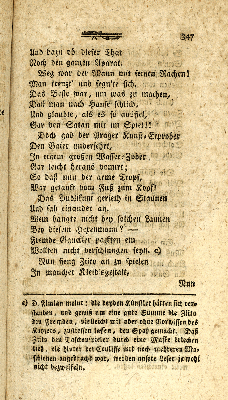 347
Und dazu zu dieser That
Noch den ganzen Aparat.
Weg war der Mann mit seinen Rachen!
Man kreuzt' und segn'te sich.
Das Beste war, um was zu machen,
Daß man nach Hause schlich,
Und glaubte, als es so ausfiel,
Gar den Satan mit im Spiel!!
Doch had der Prager Kunst-Erprober
Den Gaier unversehrt,
In einem großen Wasser-Zober
Gar leicht heraus vomirt;
So daß nun der arme Tropf,
War getauft vom Fuß zum Kopf!
Das Publikum gerieth in Staunen
Und sah einander an.
Wem bangte nicht bey solchen Launen
Bey diesem Hexenmann? —
Fremde Gauckler paßten ein
Wollten nicht verschlungen seyn. c)
Nun fieng Zito an zu spielen
In mancher Kleid'sgestalt,
Nun
c) D. Fimian meint: die beyden Künstler hätten sich ver-
standen, und genüß um eine gute Summe die Zito
den Fremden, vielleicht mit oder ohne Vorwissen des
Kaysers, zustecken lassen, den Spaß gemacht. Daß
Zito den Taschenspieler durch eine Maske bedecken
ließ, als hinter der Coulisse und noch mehreren Ma-
schienen angebracht war, werden unsere Leser wohl
nicht bezweifeln.